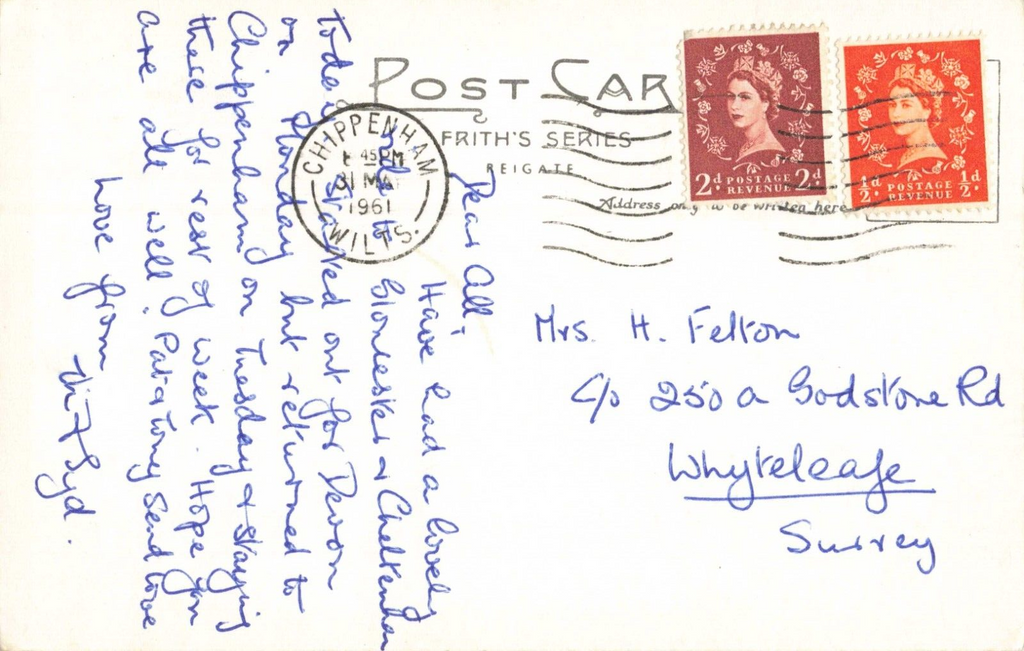 POST CAR
FRITH'S SERIES
REIGATE
CHIPPENHAM
45 PM
31 MA
1961
WILTS.
2d POSTAGE 2d
REVENUE
½d POSTAGE ½d
REVENUE
Address only to be written here
Dear All,
Have had a lovely
to Gloucester & Cheltenham
today. Started out for Devon
on Monday but returned to
Chippenham on Tuesday & staying
there for rest of week. Hope you
are all well. Pat & Tony send love
Love from
Vi & Syd.
Mrs. H. Felton
C/o 250a Godstone Rd
Whyteleafe
Surrey